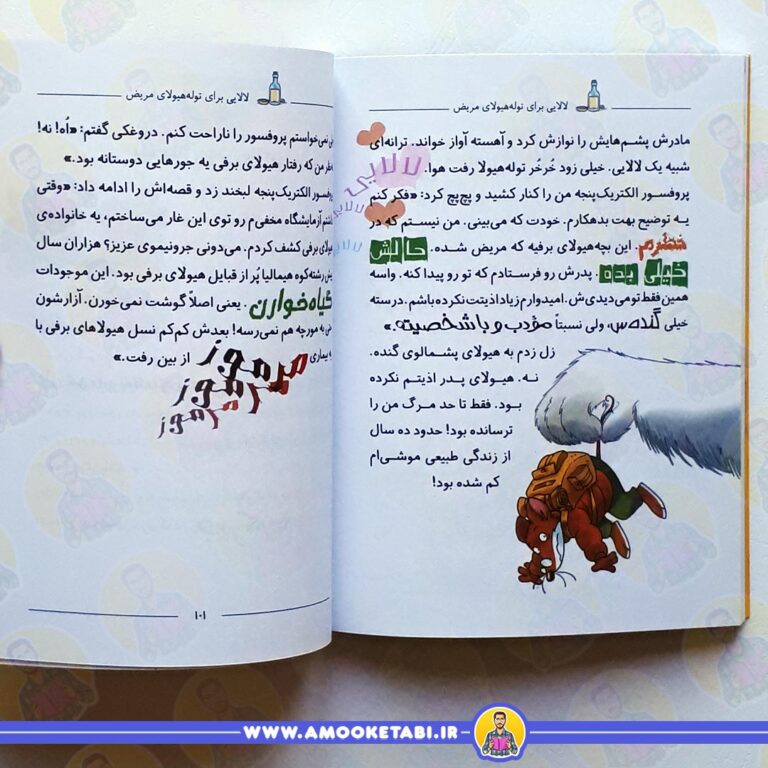 لالایی برای توله‌هیولای مریض
مادرش پشم‌هایش را نوازش کرد و آهسته آواز خواند. ترانه‌ای
شبیه یک لالایی. خیلی زود خُرخُر توله‌هیولا رفت هوا.
لالایی
لالایی
لالایی
پروفسور الکتریک‌پنجه من را کنار کشید و پچ‌پچ کرد: «فکر کنم
یه توضیح بهت بدهکارم. خودت که می‌بینی. من نیستم که در
خطرم. این بچه‌هیولای برفیه که مریض شده. حالش
خیلی بده. پدرش رو فرستادم که تو رو پیدا کنه. واسه
همین فقط تو می‌دیدی‌ش. امیدوارم زیاد اذیتت نکرده باشم. درسته
خیلی گنده‌س، ولی نسبتاً مؤدب و باشخصیته.»
زل زدم به هیولای پشمالوی گنده.
نه. هیولای پدر اذیتم نکرده
بود. فقط تا حد مرگ من را
ترسانده بود! حدود ده سال
از زندگی طبیعی موشی‌ام
کم شده بود!
لالایی برای توله‌هیولای مریض
نمی‌خواستم پروفسور را ناراحت کنم. دروغکی گفتم: «اُه! نه!
من که رفتار هیولای برفی یه جورهایی دوستانه بود.»
الکتریک‌پنجه لبخند زد و قصه‌اش را ادامه داد: «وقتی
آزمایشگاه مخفی‌م رو توی این غار می‌ساختم، یه خانواده‌ی
برفی کشف کردم. می‌دونی جرونیموی عزیز؟ هزاران سال
رشته‌کوه هیمالیا پُر از قبایل هیولای برفی بود. این موجودات
گیاه‌خوارن. یعنی اصلاً گوشت نمی‌خورن. آزارشون
به مورچه هم نمی‌رسه! بعدش کم‌کم نسل هیولاهای برفی با
بیماری مرموز از بین رفت.»
مرموز
مرموز
۱۰۱
WWW.AMOOKETABI.IR